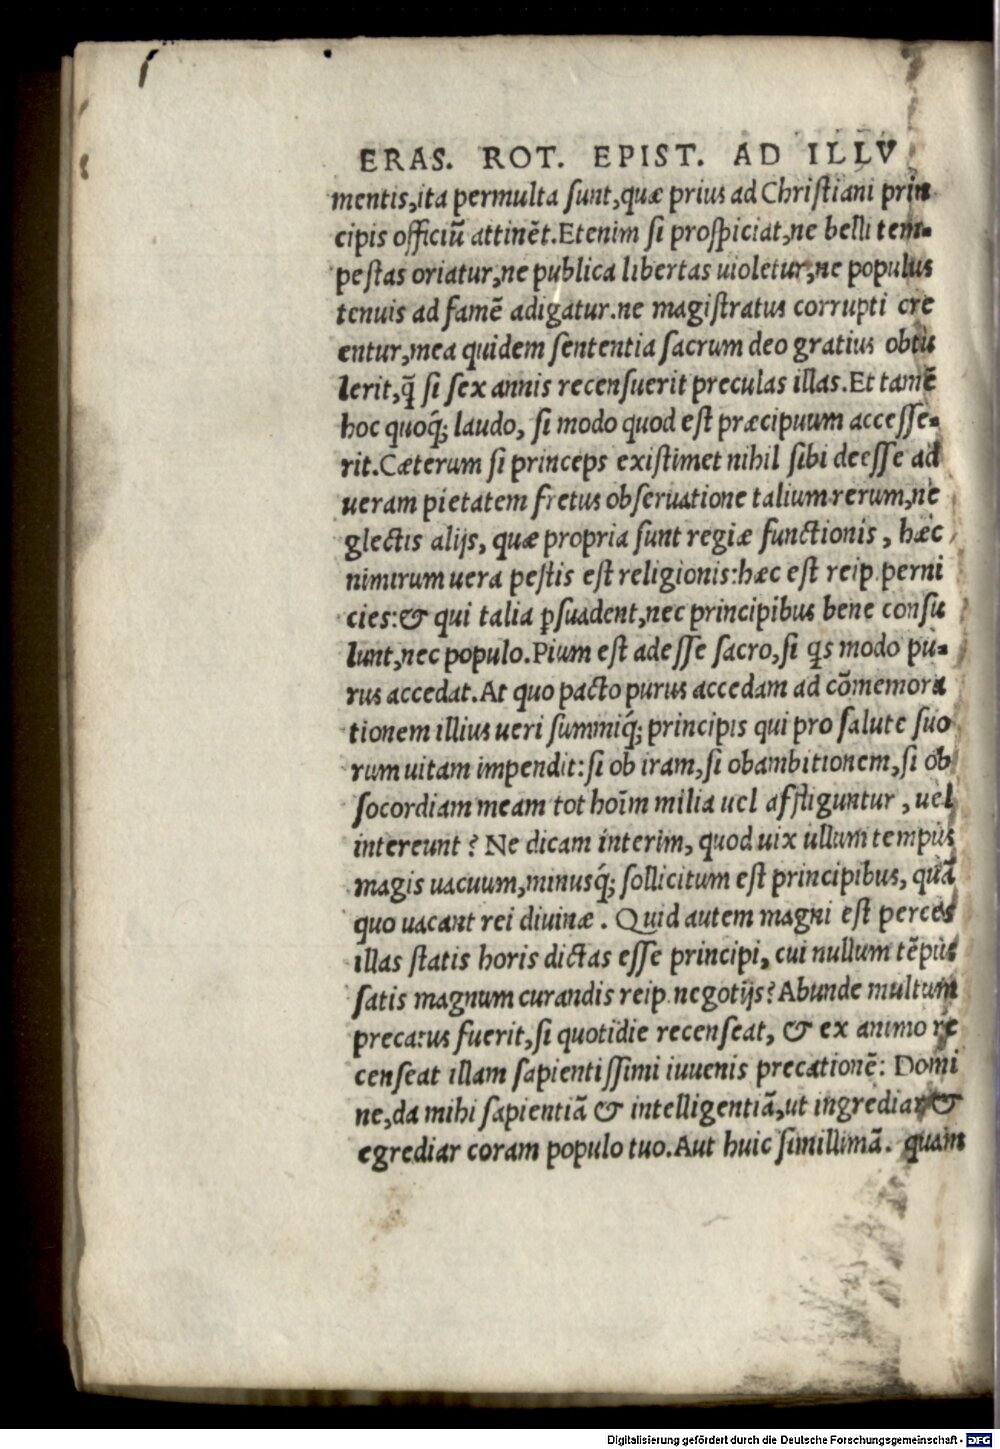 ERAS. ROT. EPIST. AD ILLV
mentis,ita permulta sunt,quæ prius ad Christiani prin
cipis officiū attinēt.Etenim si prospiciat,ne belli tem-
pestas oriatur,ne publica libertas uioletur,ne populus
tenuis ad famē adigatur.ne magistratus corrupti cre
entur,mea quidem sententia sacrum deo gratius obtu
lerit,q̃ si sex annis recensuerit preculas illas.Et tamē
hoc quoq́; laudo, si modo quod est præcipuum accesse-
rit.Cæterum si princeps existimet nihil sibi deesse ad
ueram pietatem fretus obseruatione talium rerum,ne
glectis alijs, quæ propria sunt regiæ functionis, hæc
nimirum uera pestis est religionis:hæc est reip.perni
cies:& qui talia ꝑsuadent,nec principibus bene consu
lunt,nec populo.Pium est adesse sacro,si qs modo pu-
rus accedat.At quo pacto purus accedam ad cōmemora
tionem illius ueri summiq́; principis qui pro salute suo
rum uitam impendit:si ob iram,si ob ambitionem,si ob
socordiam meam tot hoīm milia uel affliguntur, uel
intereunt? Ne dicam interim, quod uix ullum tempus
magis uacuum,minusq́; sollicitum est principibus, quā
quo uacant rei diuinæ. Quid autem magni est preces
illas statis horis dictas esse principi, cui nullum tēpus
satis magnum curandis reip.negotijs? Abunde multum
precatus fuerit,si quotidie recenseat, & ex animo re
censeat illam sapientissimi iuuenis precationē: Domi
ne,da mihi sapientiā & intelligentiā,ut ingrediar &
egrediar coram populo tuo.Aut huic simillimā. quam
Digitalisierung gefördert durch die Deutsche Forschungsgemeinschaft - DFG